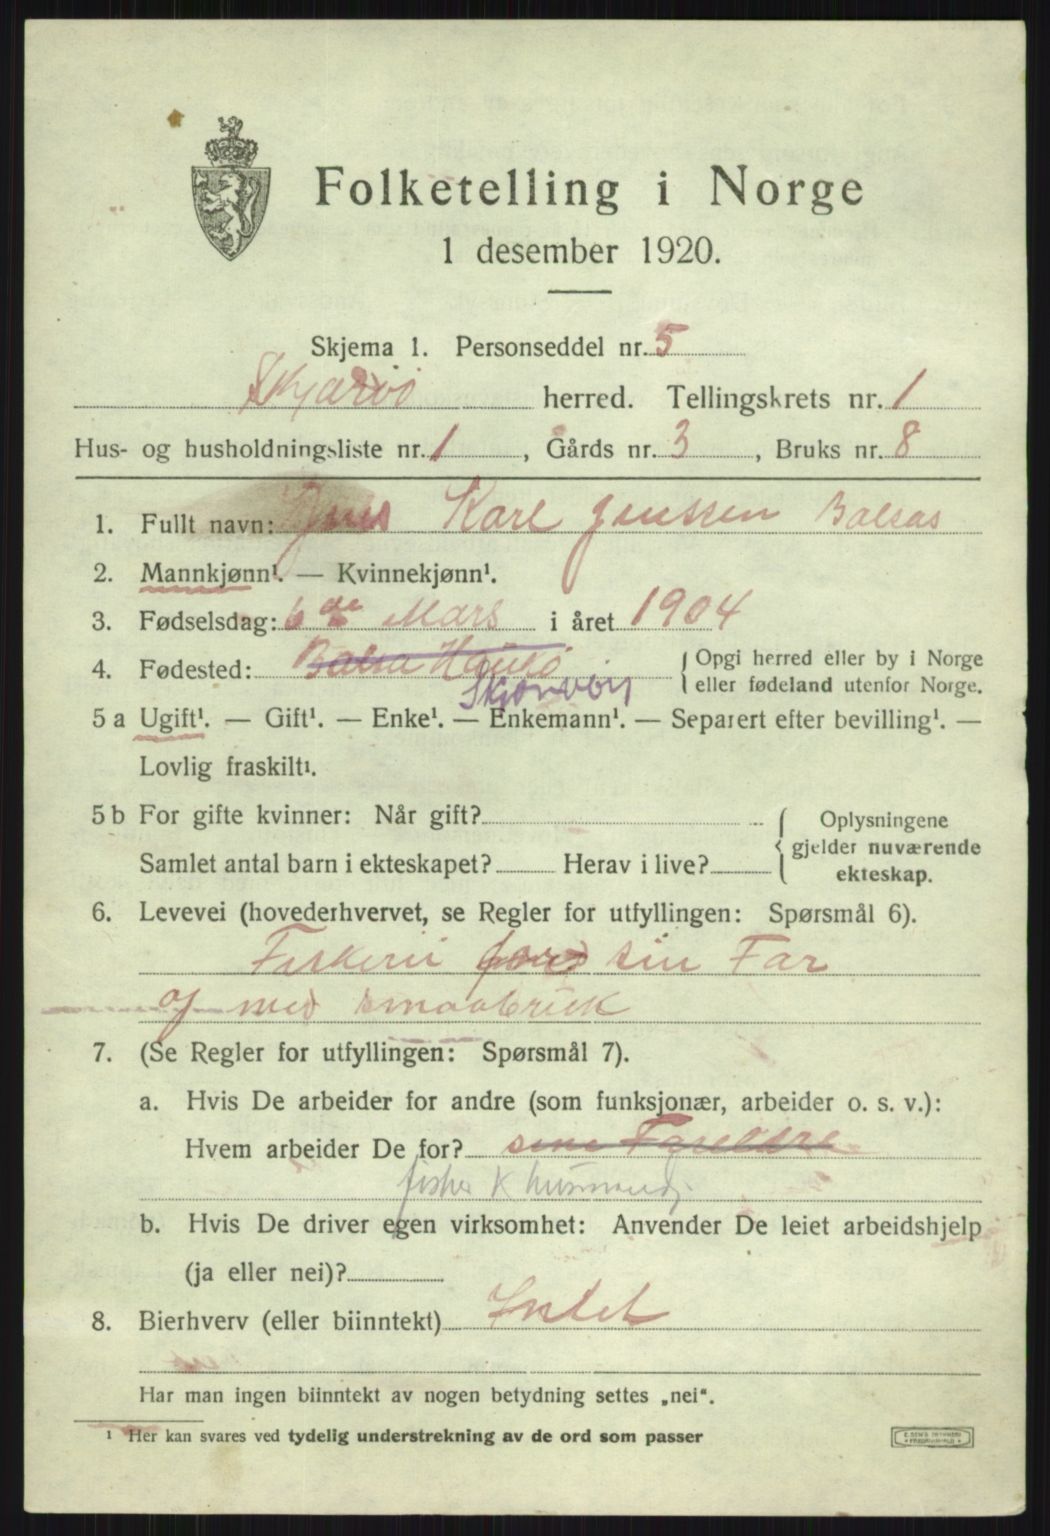 Folketelling i Norge
1 desember 1920.
Skjema 1. Personseddel nr. 5
Skjærvö herred. Tellingskrets nr. 1
Hus- og husholdningsliste nr. 1, Gårds nr. 3, Bruks nr. 8
1. Fullt navn: Jens Karl Jenssen Balsas
2. Mannkjønn¹. — Kvinnekjønn¹.
3. Fødselsdag: 6de Mars i året 1904
4. Fødested: Balsa Haukö
Opgi herred eller by i Norge
eller fødeland utenfor Norge.
Skjærvöy
5 a Ugift¹. — Gift¹. — Enke¹. — Enkemann¹. — Separert efter bevilling¹. —
Lovlig fraskilt¹.
5 b For gifte kvinner: Når gift?
Samlet antal barn i ekteskapet? Herav i live?
Oplysningene
gjelder nuværende
ekteskap.
6. Levevei (hovederhvervet, se Regler for utfyllingen: Spørsmål 6).
Fiskeri for sin Far
og med smaabruk
7. (Se Regler for utfyllingen: Spørsmål 7).
a. Hvis De arbeider for andre (som funksjonær, arbeider o. s. v.):
Hvem arbeider De for? sine Foreldre
fisker K husmand
b. Hvis De driver egen virksomhet: Anvender De leiet arbeidshjelp
(ja eller nei)?
8. Bierhverv (eller biinntekt) Intet
Har man ingen biinntekt av nogen betydning settes „nei“.
¹ Her kan svares ved tydelig understrekning av de ord som passer